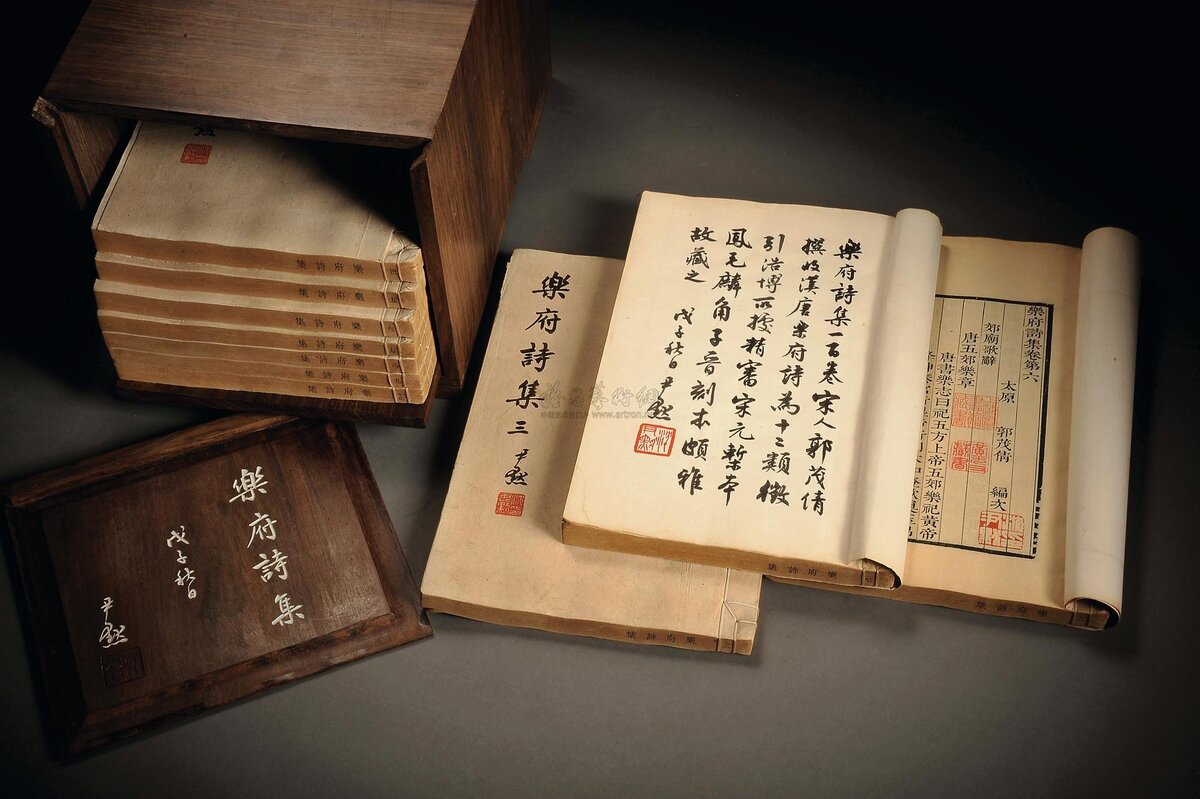 樂府詩集
戊子秋日
尹默
樂府詩集
樂府詩集
樂府詩集
樂府詩集
樂府詩集
樂府詩集
樂府詩集三
尹默
樂府詩集
三
樂府詩集一百卷宋人郭茂倩
撰收漢唐樂府詩為十二類徵
引浩博所據精審宋元槧本
鳳毛麟角子晉刻本頗雅
故藏之
戊子秋日尹默
樂府詩集
樂府詩集卷第六
太原
郭茂倩
編次
郊廟歌辭
唐五郊樂章
唐書樂志曰祀五方上帝五郊樂祀黃帝
樂府詩集
www.artron.net